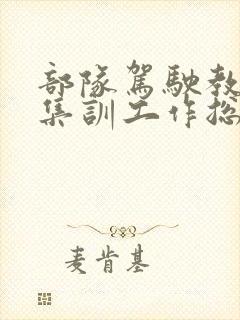 部隊駕駛教
集訓工作
麦肯基